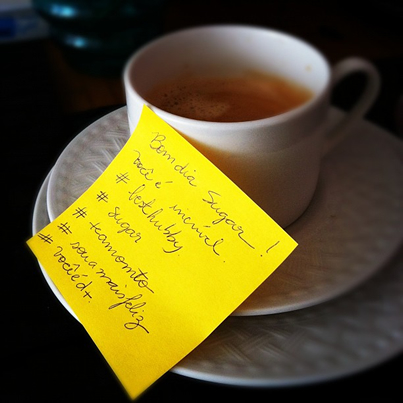 Bom dia Sugar!
você é incrível.
# besthubby
# sugar
# teamomto
# souamaisfeliz
# vocêédt.